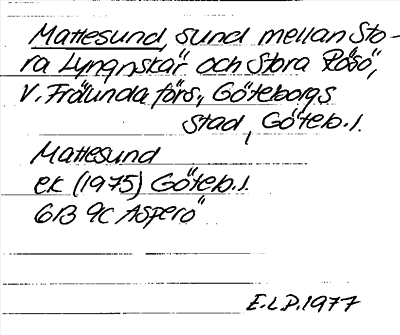 Mattesund, sund mellan Sto-
ra Lyngnskär och Stora Rösö,
V. Frölunda förs., Göteborgs
stad, Göteb. l.
Mattesund
ek (1975) Göteb. l.
6B 9c Asperö
E.L.P. 1977